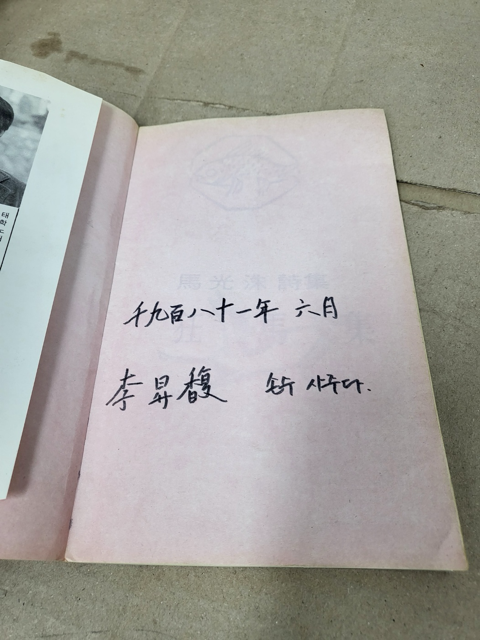 馬光洙詩集
千九百八十一年 六月
集
李昇馥 손수 사주다.